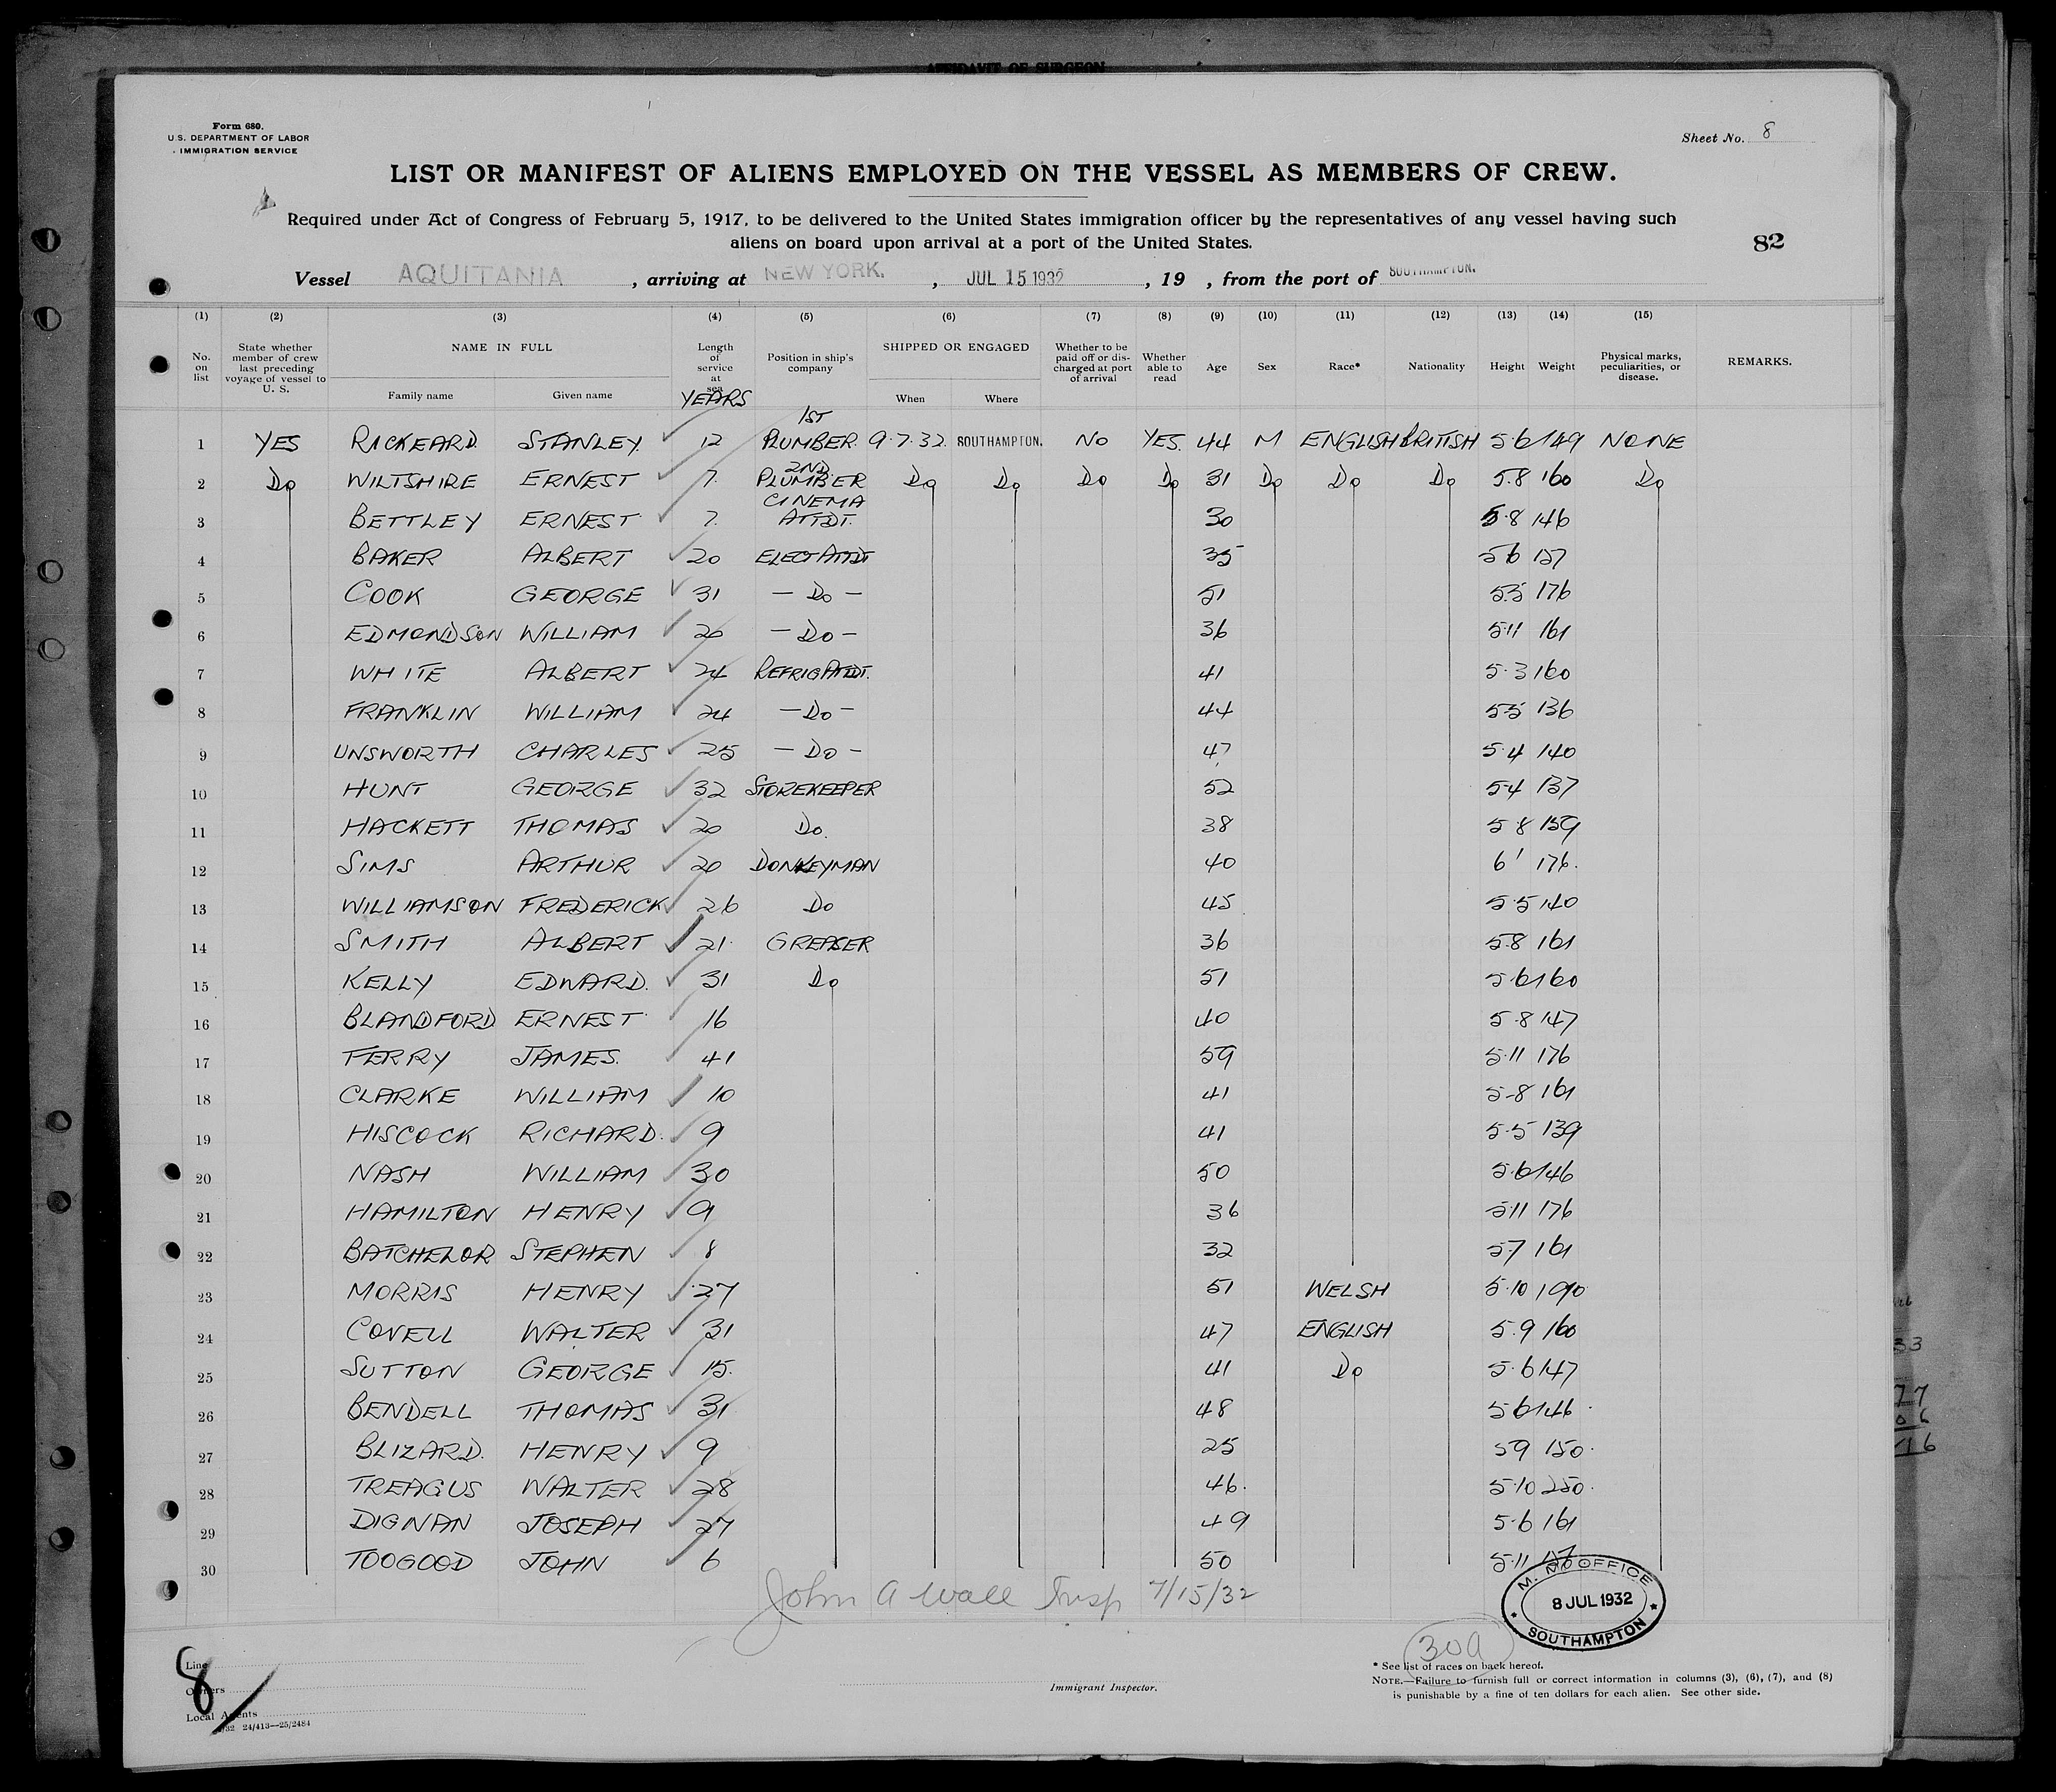 AFFIDAVIT OF SURGEON
Form 680.
U.S. DEPARTMENT OF LABOR
IMMIGRATION SERVICE
Sheet No. 8
LIST OR MANIFEST OF ALIENS EMPLOYED ON THE VESSEL AS MEMBERS OF CREW.
Required under Act of Congress of February 5, 1917, to be delivered to the United States immigration officer by the representatives of any vessel having such
aliens on board upon arrival at a port of the United States.
82
Vessel AQUITANIA, arriving at NEW YORK., JUL 15 1932, 19 , from the port of SOUTHAMPTON.
(1) (2) (3) (4) (5) (6) (7) (8) (9) (10) (11) (12) (13) (14) (15)
No. on list | State whether member of crew last preceding voyage of vessel to U. S. | NAME IN FULL | Family name | Given name | Length of service at sea YEARS | Position in ship's company | SHIPPED OR ENGAGED | When | Where | Whether to be paid off or discharged at port of arrival | Whether able to read | Age | Sex | Race* | Nationality | Height | Weight | Physical marks, peculiarities, or disease. | REMARKS.
1 YES RICKEARD STANLEY. 12 1ST PLUMBER 9.7.32. SOUTHAMPTON. NO YES. 44 M ENGLISH BRITISH 5.6 149 NONE
2 Do WILTSHIRE ERNEST 7. 2ND PLUMBER Do Do Do Do 31 Do Do Do 5.8 160 Do
3 BETTLEY ERNEST 7. CINEMA ATTDT. 30 5.8 146
4 BAKER ALBERT 20 ELECT ATTDT 35 5 6 157
5 COOK GEORGE 31 - Do - 51 5.5 176
6 EDMONDSON WILLIAM 20 - Do - 36 5.11 161
7 WHITE ALBERT 24 REFRIG ATTDT. 41 5.3 160
8 FRANKLIN WILLIAM 24 - Do - 44 5.5 136
9 UNSWORTH CHARLES 25 - Do - 47 5.4 140
10 HUNT GEORGE 32 STOREKEEPER 52 5.4 137
11 HACKETT THOMAS 20 Do. 38 5 8 159
12 SIMS ARTHUR 20 DONKEYMAN 40 6' 176.
13 WILLIAMSON FREDERICK 26 Do 45 5.5 140
14 SMITH ALBERT 21. GREASER 36 5.8 161
15 KELLY EDWARD. 31 Do 51 5.6 160
16 BLANDFORD ERNEST 16 40 5.8 147
17 TERRY JAMES. 41 59 5.11 176
18 CLARKE WILLIAM 10 41 5-8 161
19 HISCOCK RICHARD. 9 41 5.5 139
20 NASH WILLIAM 30 50 5.6 146
21 HAMILTON HENRY 9 36 5.11 176
22 BATCHELOR STEPHEN 8 32 5.7 161
23 MORRIS HENRY 27 51 WELSH 5.10 190
24 COVELL WALTER 31 47 ENGLISH 5.9 160
25 SUTTON GEORGE 15. 41 Do 5.6 147
26 BENDELL THOMAS 31 48 5 6 146
27 BLIZARD. HENRY 9 25 5 9 150.
28 TREAGUS WALTER 28 46. 5.10 250.
29 DIGNAN JOSEPH 27 49 5.6 161
30 TOOGOOD JOHN 6 50 5.11
John A Wall Insp 7/15/32
M. M. OFFICE
8 JUL 1932
SOUTHAMPTON
Line
Owners
Local Agents
8/
24/413—25/2484
Immigrant Inspector.
30a
* See list of races on back hereof.
NOTE.—Failure to furnish full or correct information in columns (3), (6), (7), and (8)
is punishable by a fine of ten dollars for each alien. See other side.